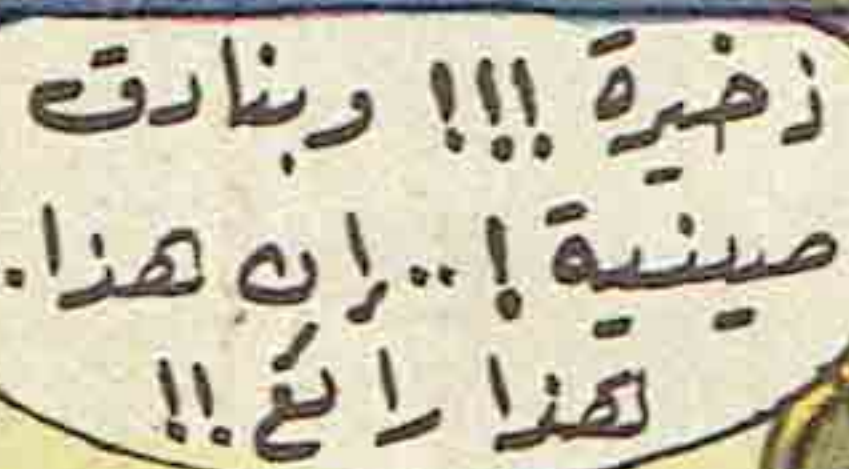 ذخيرة !!! وبنادق
صينية ! .. إن هذا .
هذا رائع !!